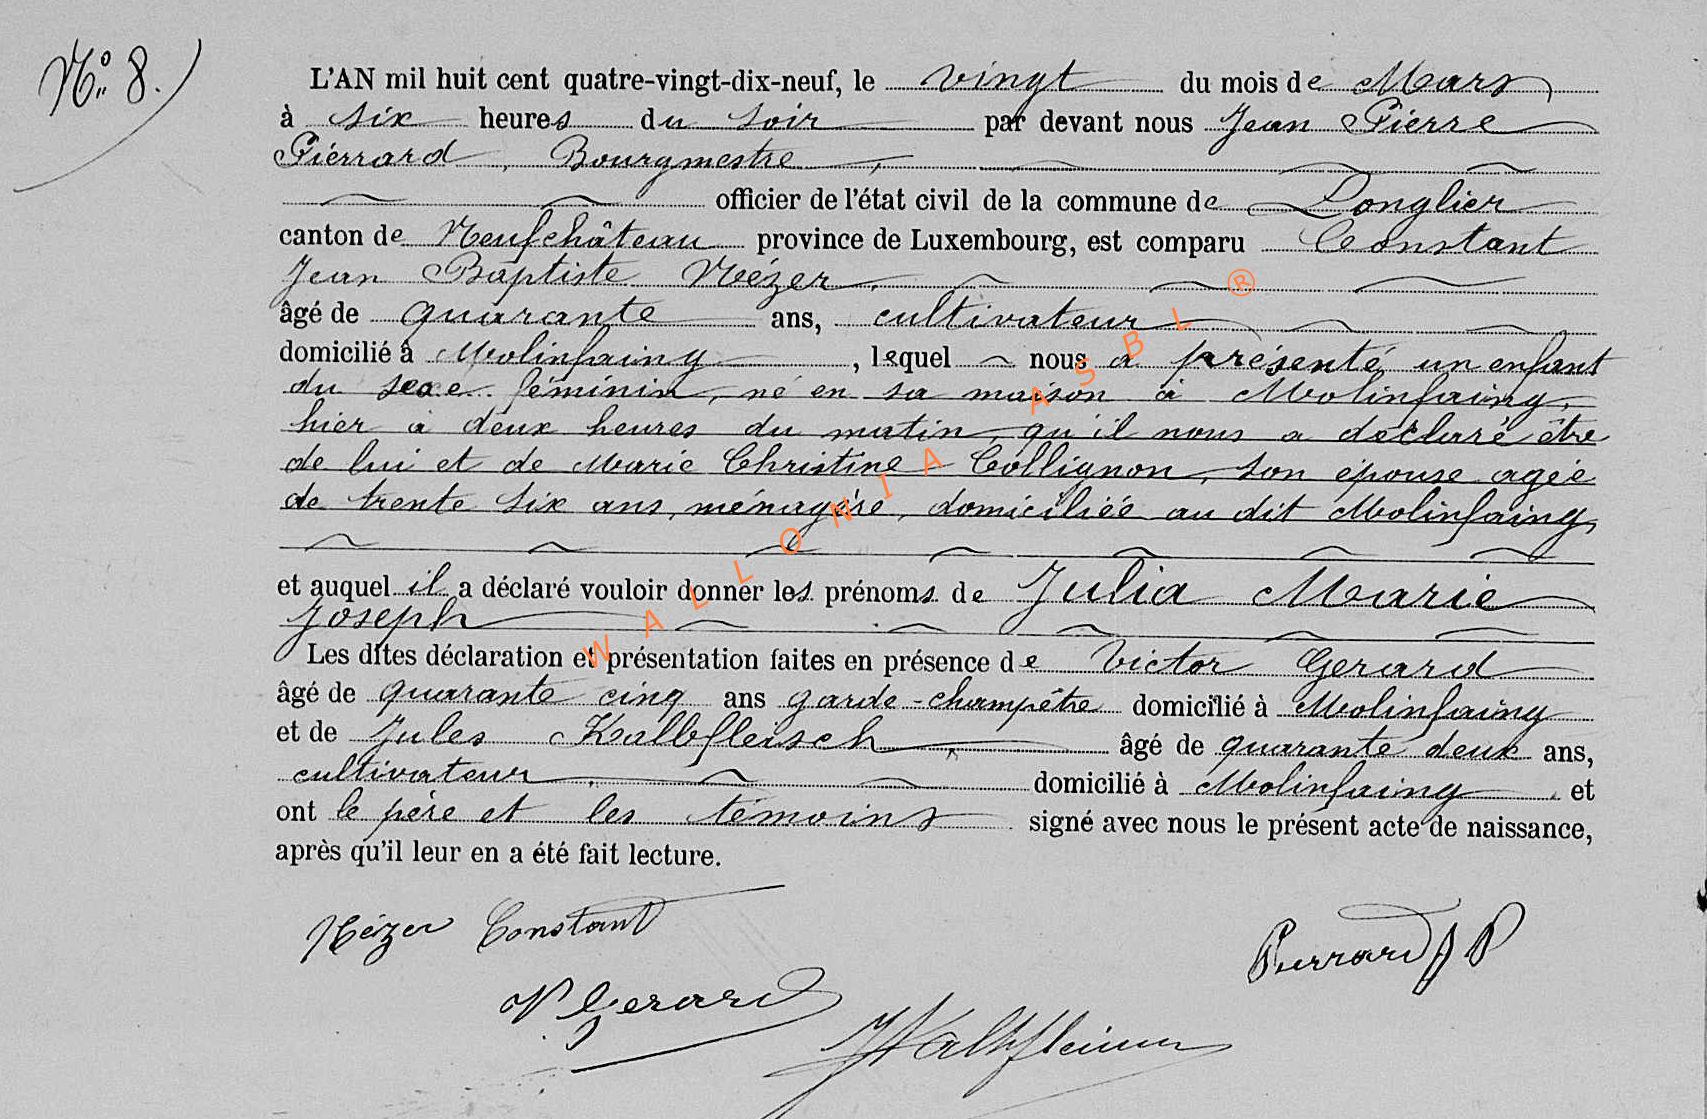 N° 8.
L'AN mil huit cent quatre-vingt-dix-neuf, le vingt du mois de Mars
à six heures du soir par devant nous Jean Pierre
Piérrard, Bourgmestre,
officier de l'état civil de la commune de Longlier
canton de Neufchâteau province de Luxembourg, est comparu Constant
Jean Baptiste Nézer,
âgé de quarante ans, cultivateur
domicilié à Molinfaing, lequel nous a présenté un enfant
du sexe féminin, né en sa maison à Molinfaing,
hier à deux heures du matin, qu'il nous a déclaré être
de lui et de Marie Christine Collignon, son épouse agée
de trente six ans, ménagère, domiciliée au dit Molinfaing
et auquel il a déclaré vouloir donner les prénoms de Julia Marie
Joseph
Les dites déclaration et présentation faites en présence de Victor Gerard
âgé de quarante cinq ans garde-champêtre domicilié à Molinfaing
et de Jules Kalbfleisch, âgé de quarante deux ans,
cultivateur, domicilié à Molinfaing et
ont le père et les témoins signé avec nous le présent acte de naissance,
après qu'il leur en a été fait lecture.
Nézer Constant
Pierrard J P
V Gerard
WALLONIA ASBL ®